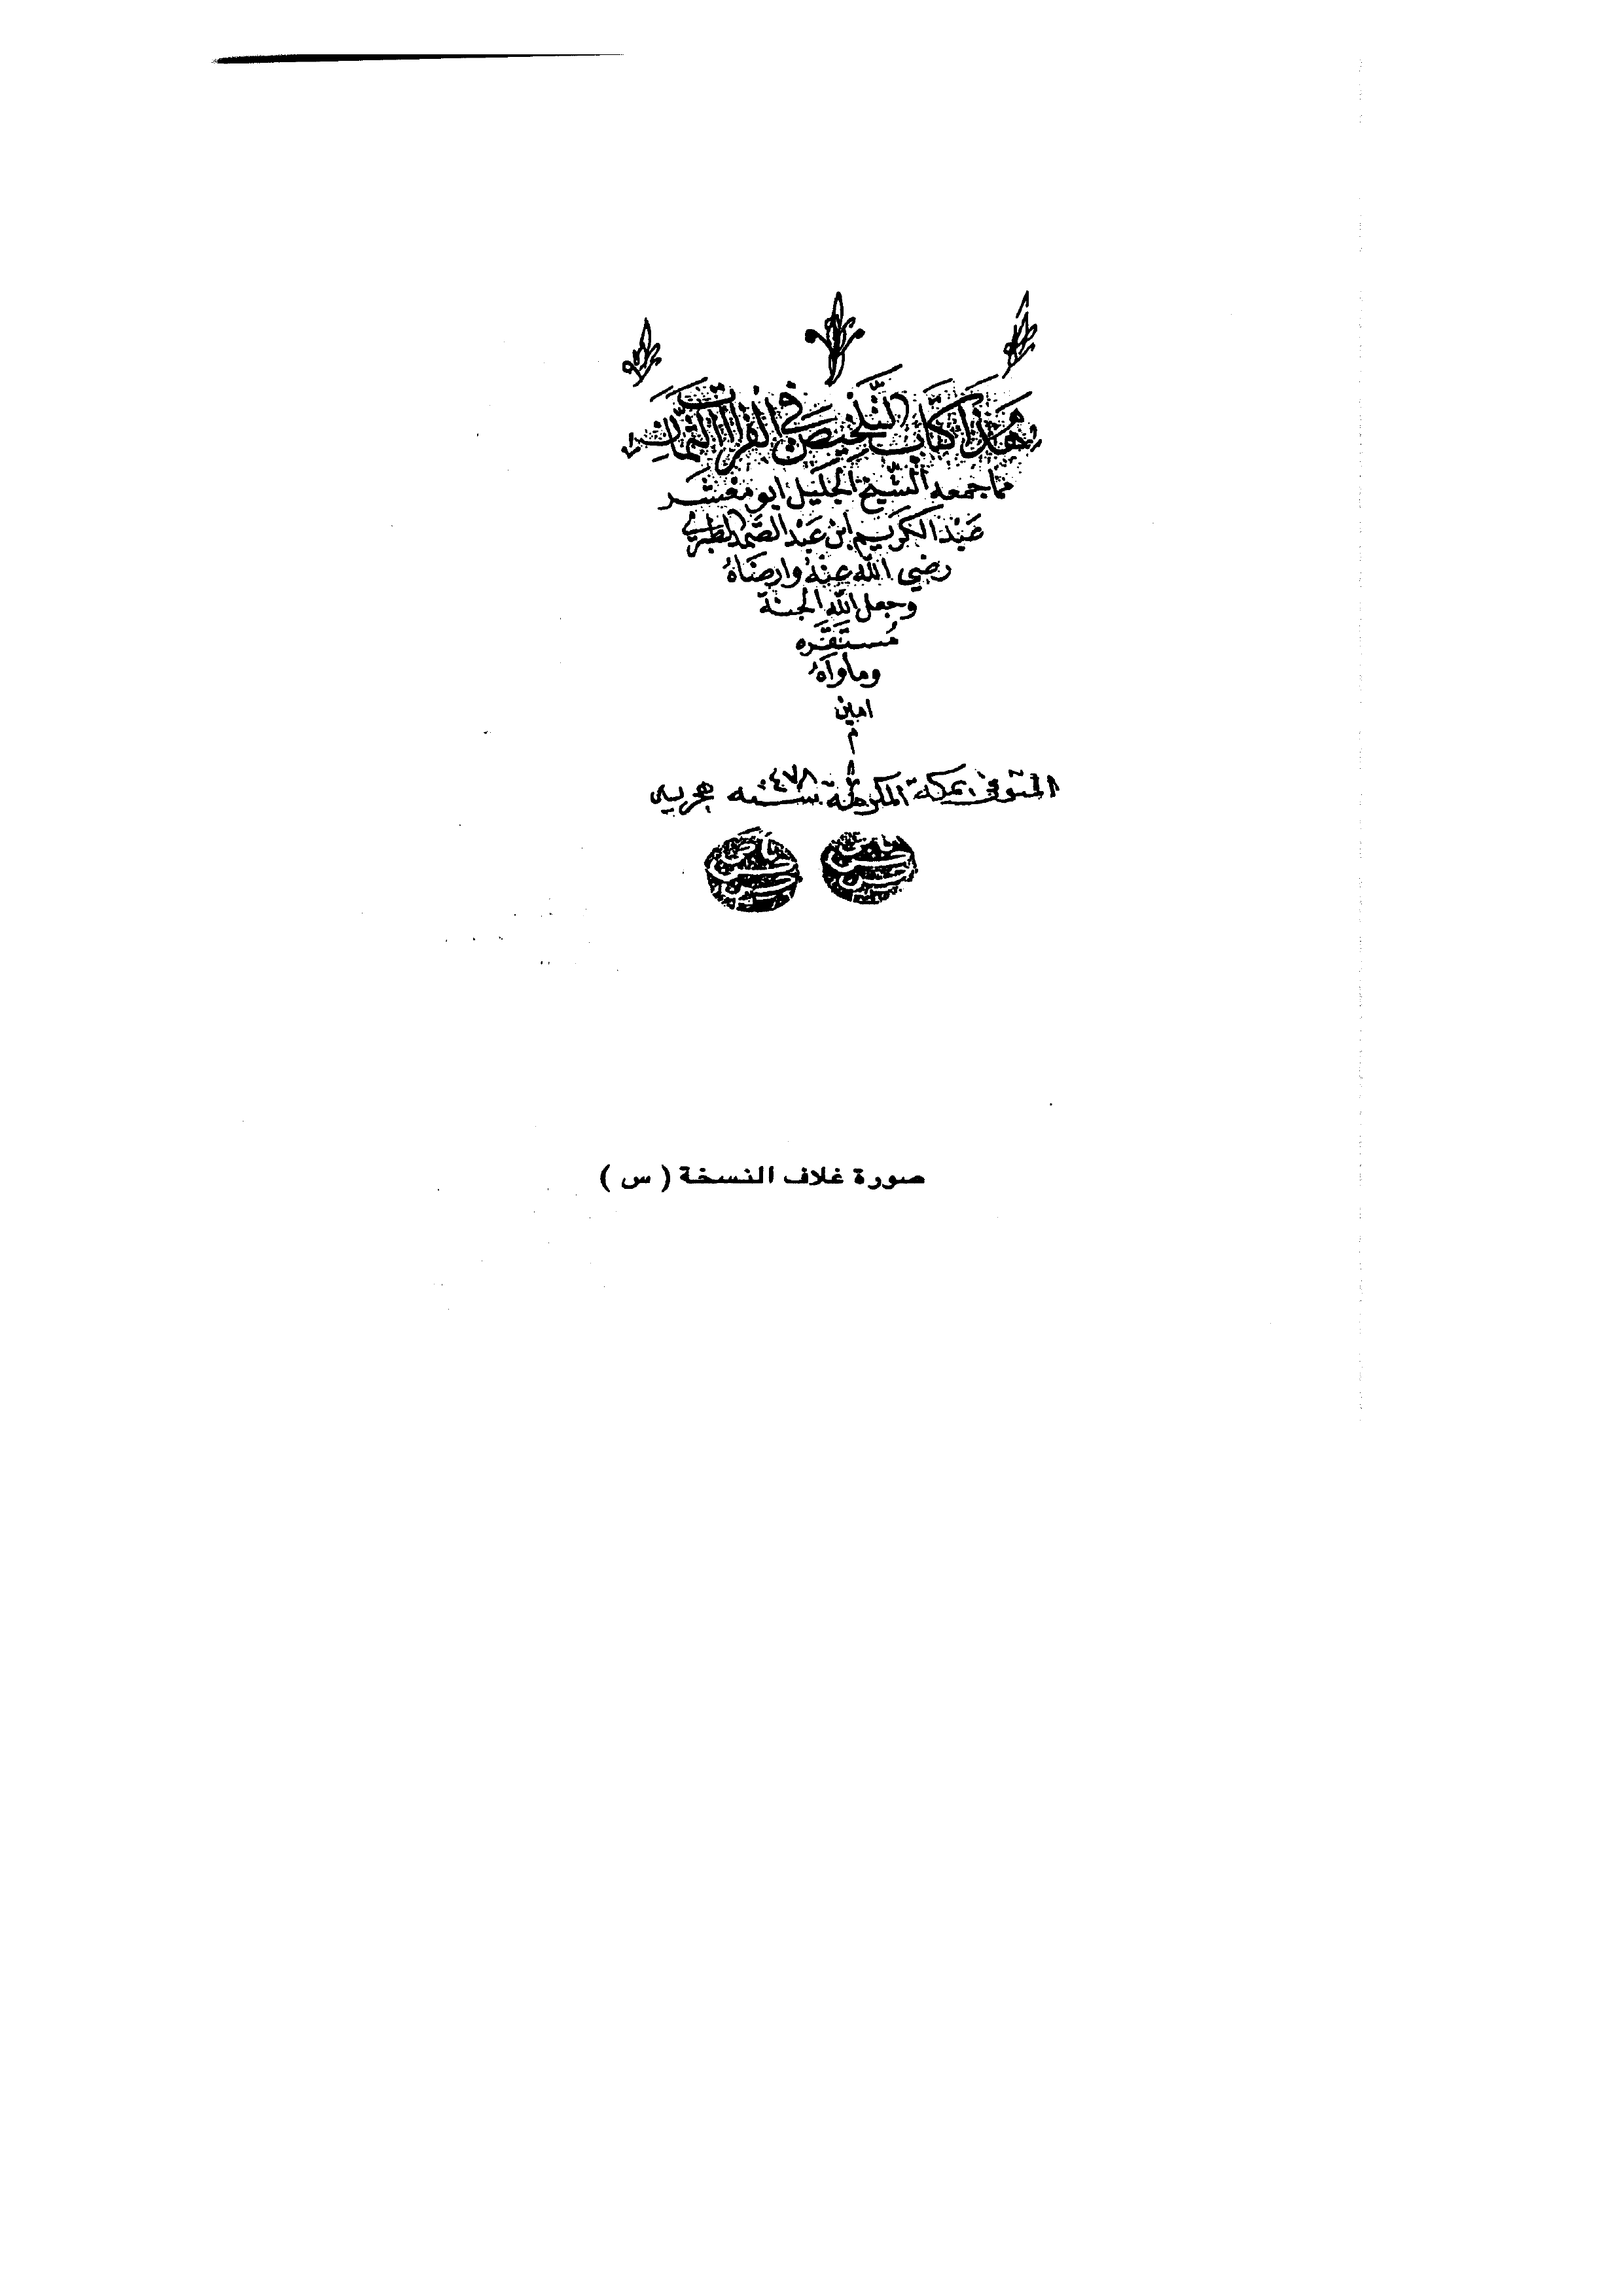 هَذَا كِتَاب التَّلْخِيصَ فِي القراات الثَّمان
مما جمعه الشّيخ الجَليل ابو مَعْشَر
عَبْد الكَرِيم ابن عَبْد الصَّمد الطبري
رضي الله عَنْهُ وارضَاهُ
وجعل الله الجنة
مُستَقَره
ومأوَاهُ
امين
م
المتوفى بمكة المكرمة سنه ٤٧٨ هجريه
صورة غلاف النسخة ( س )